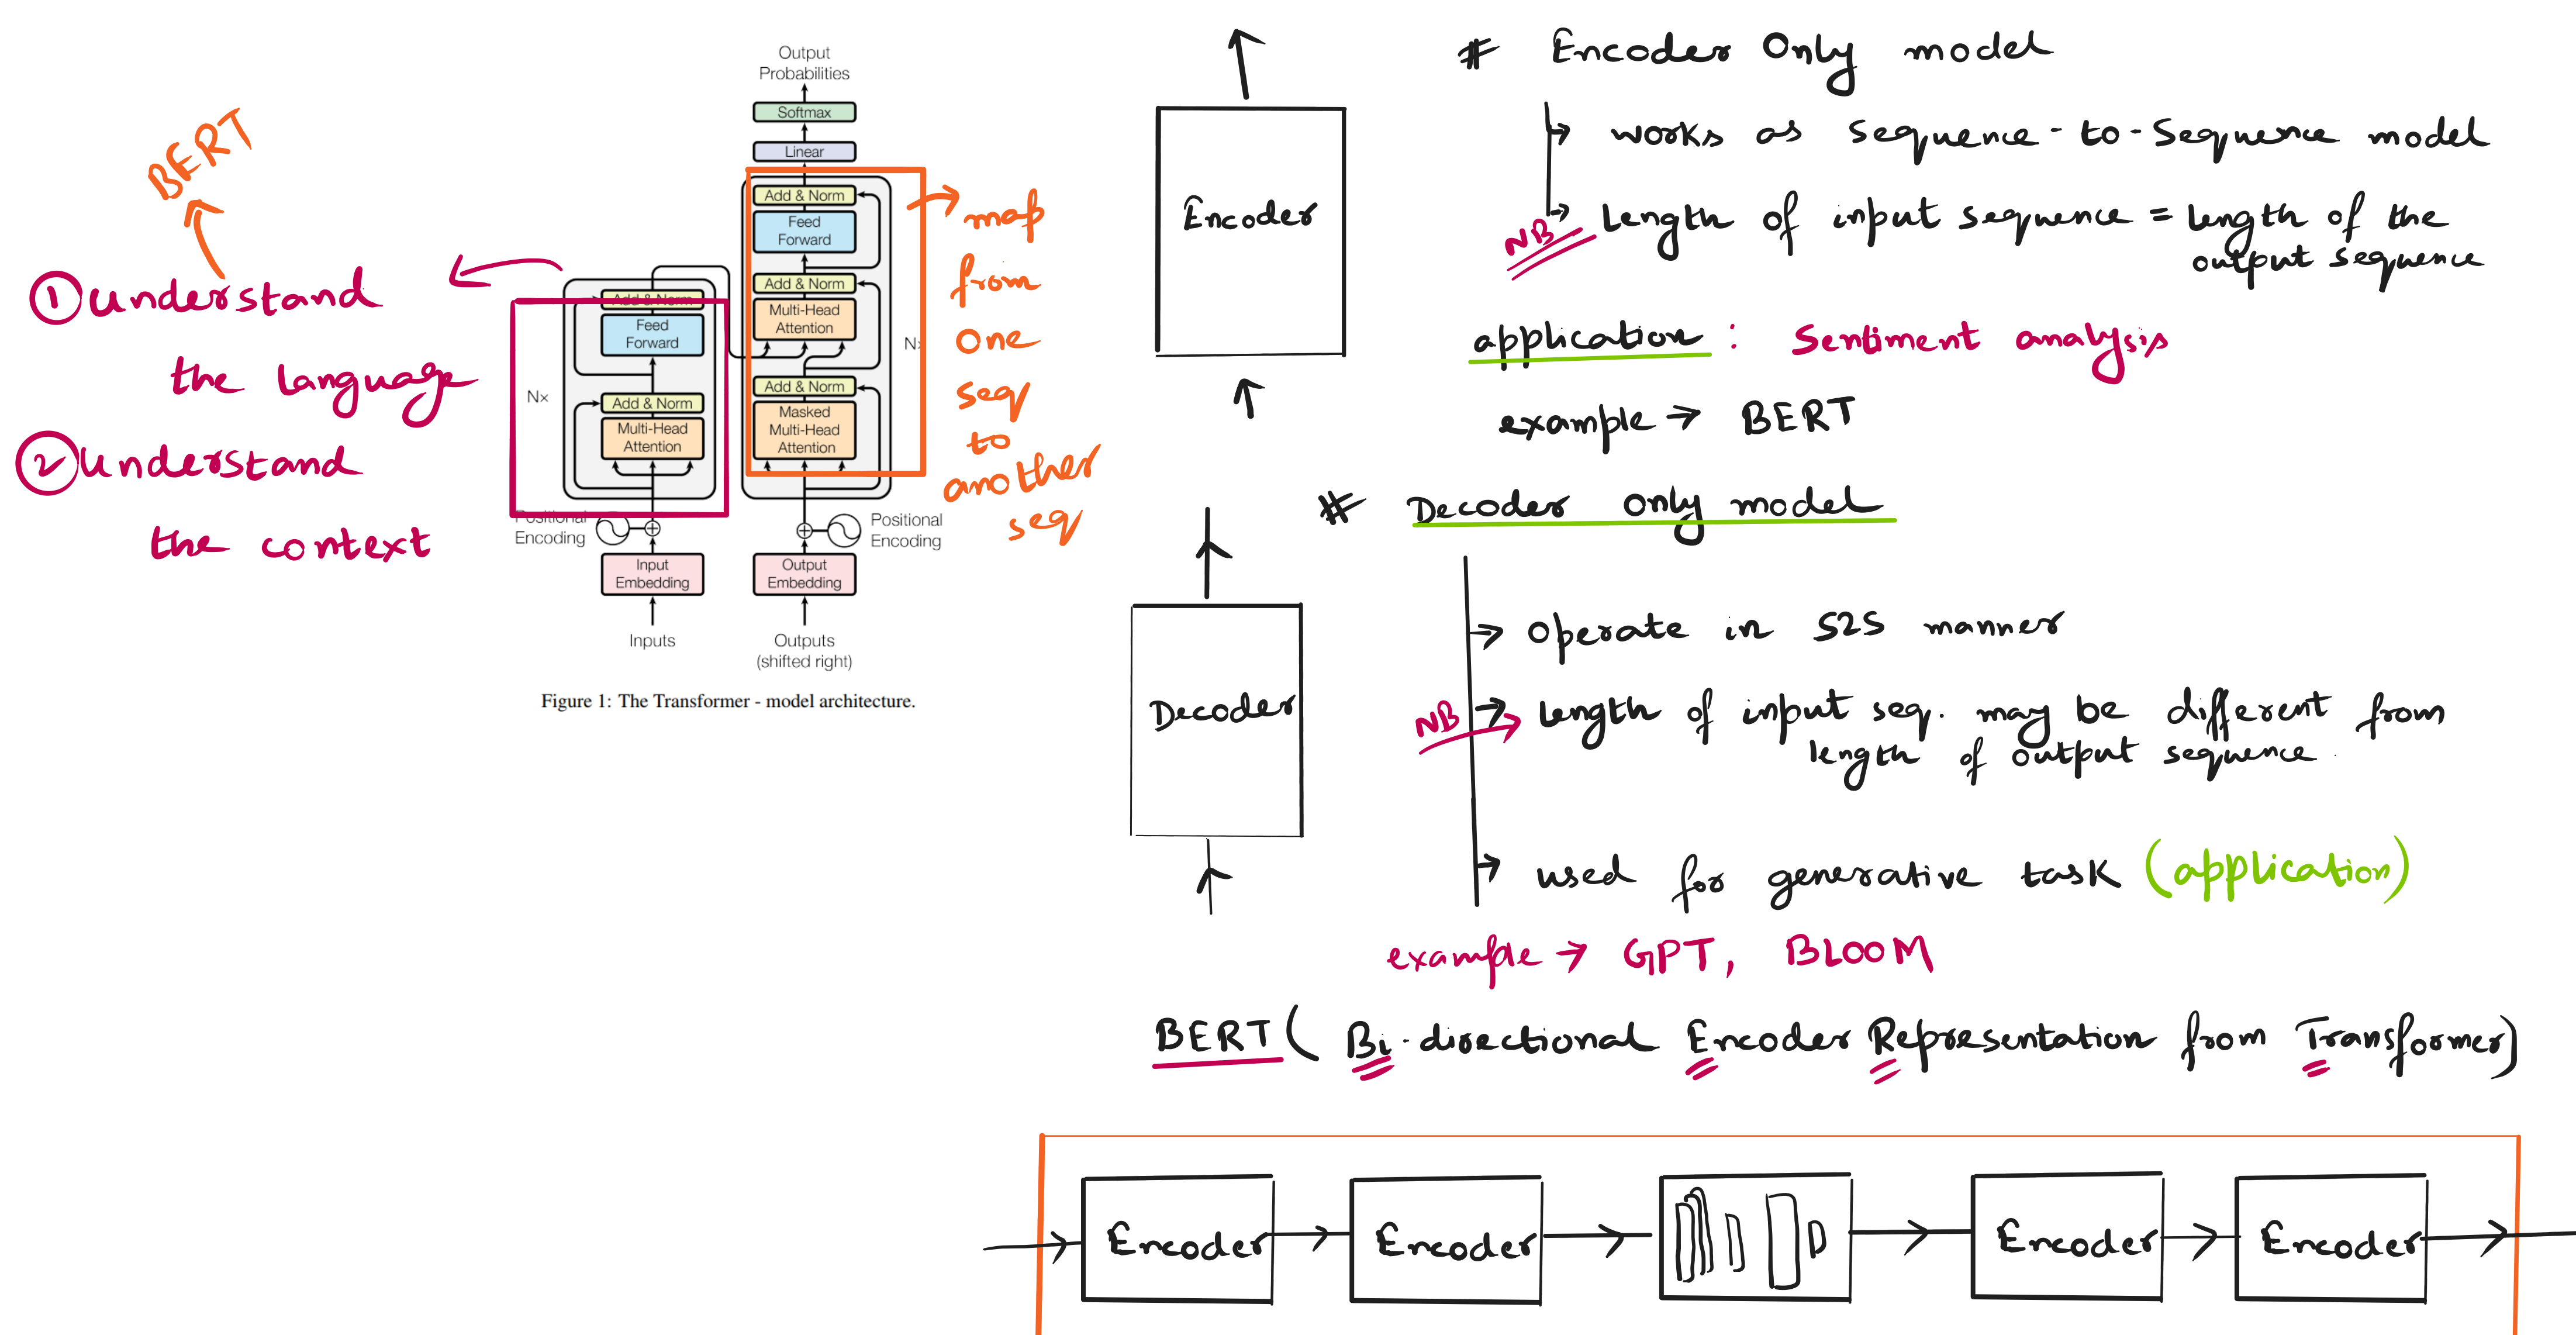 BERT
① understand
the language
② understand
the context
Output
Probabilities
Softmax
Linear
Add & Norm
Feed
Forward
Add & Norm
Multi-Head
Attention
N×
Add & Norm
Masked
Multi-Head
Attention
Add & Norm
Feed
Forward
N×
Add & Norm
Multi-Head
Attention
Positional
Encoding
Positional
Encoding
Input
Embedding
Output
Embedding
Inputs
Outputs
(shifted right)
Figure 1: The Transformer - model architecture.
map
from
one
seq
to
another
seq
Encoder
# Encoder Only model
→ works as sequence-to-sequence model
NB → Length of input sequence = length of the
output sequence
application : Sentiment analysis
example → BERT
# Decoder only model
Decoder
→ operate in S2S manner
NB → length of input seq. may be different from
length of output sequence.
→ used for generative task (application)
example → GPT, BLOOM
BERT ( Bi-directional Encoder Representation from Transformer)
Encoder → Encoder → → Encoder → Encoder →